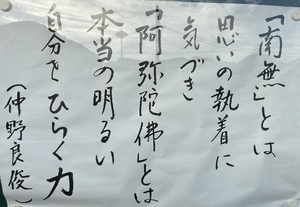 「南無」とは
思いの執着に
気づき
「阿弥陀佛」とは
本当の明るい
自分をひらく力
(仲野良俊)